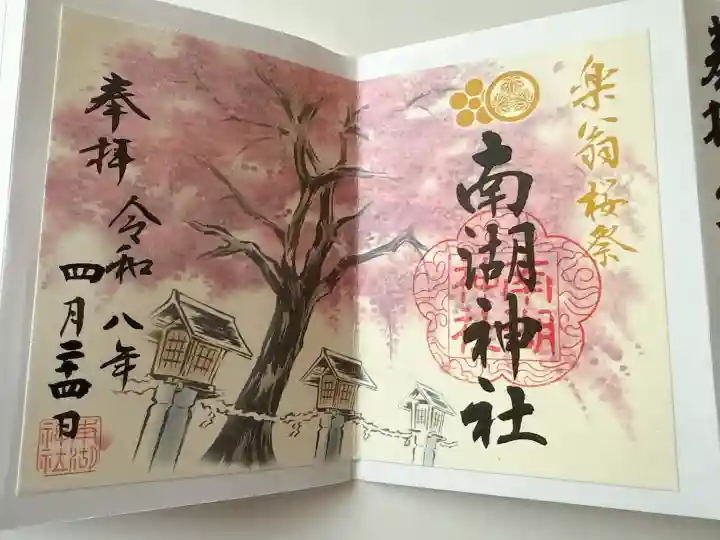 楽翁桜祭
南湖神社
南湖神社
奉拝
令和八年
四月二十四日
南湖神社